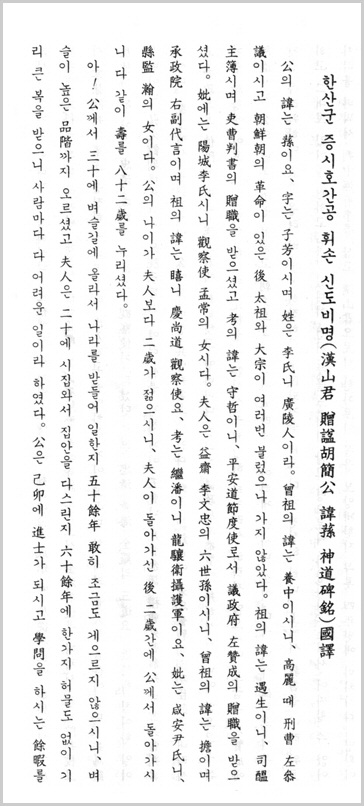 한산군 증시호간공 휘손 신도비명(漢山君 贈諡胡簡公 諱蓀 神道碑銘)國譯
公의 諱는 蓀이요、字는 子芳이시며 姓은 李氏니 廣陵人이라。曾祖의 諱는 養中이시니、高麗 때 刑曹 左叅
議이시고 朝鮮朝의 革命이 있은 後 太祖와 大宗이 여러번 불렀으나 가지 않았다。祖의 諱는 遇生이니、司醞
主簿시며 吏曹判書의 贈職을 받으셨고 考의 諱는 守哲이니、平安道節度使로서 議政府 左贊成의 贈職을 받으
셨다。妣에는 陽城李氏시니 觀察使 孟常의 女시다。夫人은 益齋 李文忠의 六世孫이시니、曾祖의 諱는 擔이며
承政院 右副代言이며 祖의 諱는 暿니 慶尚道 觀察使요、考는 繼潘이니 龍驤衛攝護軍이요、妣는 咸安尹氏니、
縣監 瀚의 女이다。公의 나이가 夫人보다 二歲가 젊으시니、夫人이 돌아가신 後 二歲간에 公께서 돌아가시
니 다 같이 壽를 八十二歲를 누리셨다。
아！ 公께서 三十에 벼슬길에 올라서 나라를 받들어 일한지 五十餘年 敢히 조금도 게으르지 않으시니、벼
슬이 높은 品階까지 오르셨고 夫人은 二十에 시집와서 집안을 다스린지 六十餘年에 한가지 허물도 없이 기
리 큰 복을 받으니 사람마다 다 어려운 일이라 하였다。公은 己卯에 進士가 되시고 學問을 하시는 餘暇를